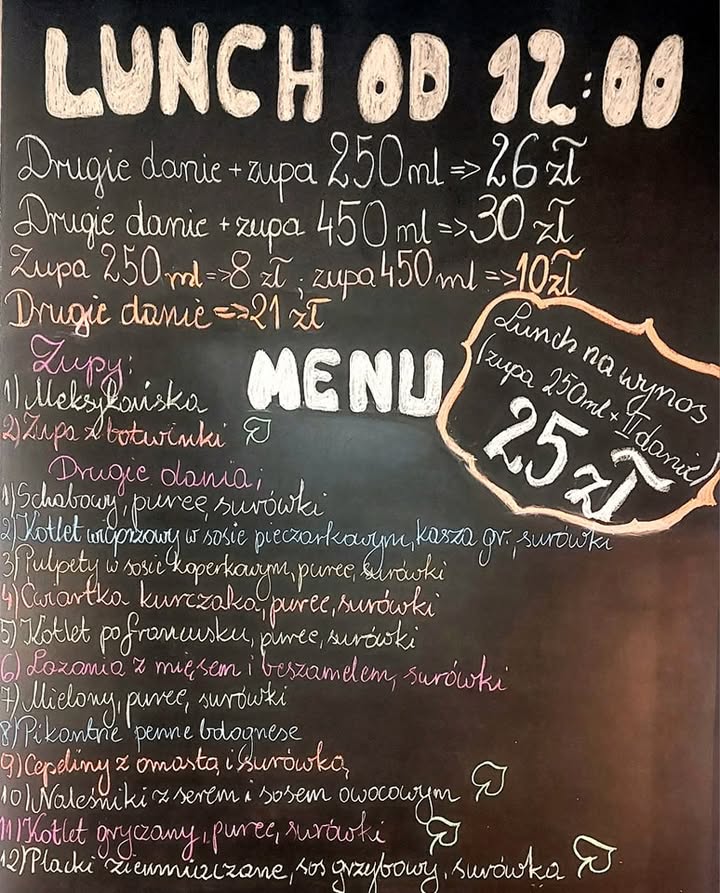 LUNCH OD 12:00
Drugie danie + zupa 250 ml => 26 zł
Drugie danie + zupa 450 ml => 30 zł
Zupa 250 ml => 8 zł ; zupa 450 ml => 10 zł
Drugie danie => 21 zł
Lunch na wynos
(zupa 250ml + II danie)
25 zł
MENU
Zupy:
1) Meksykańska
2) Zupa z botwinki
Drugie dania:
1) Schabowy, puree, surówki
2) Kotlet wieprzowy w sosie pieczarkowym, kasza gr., surówki
3) Pulpety w sosie koperkowym, puree, surówki
4) Ćwiartka kurczaka, puree, surówki
5) Kotlet po francusku, puree, surówki
6) Lazania z mięsem i beszamelem, surówki
7) Mielony, puree, surówki
8) Pikantne penne bolognese
9) Cepeliny z omastą i surówką
10) Naleśniki z serem i sosem owocowym
11) Kotlet gryczany, puree, surówki
12) Placki ziemniaczane, sos grzybowy, surówka